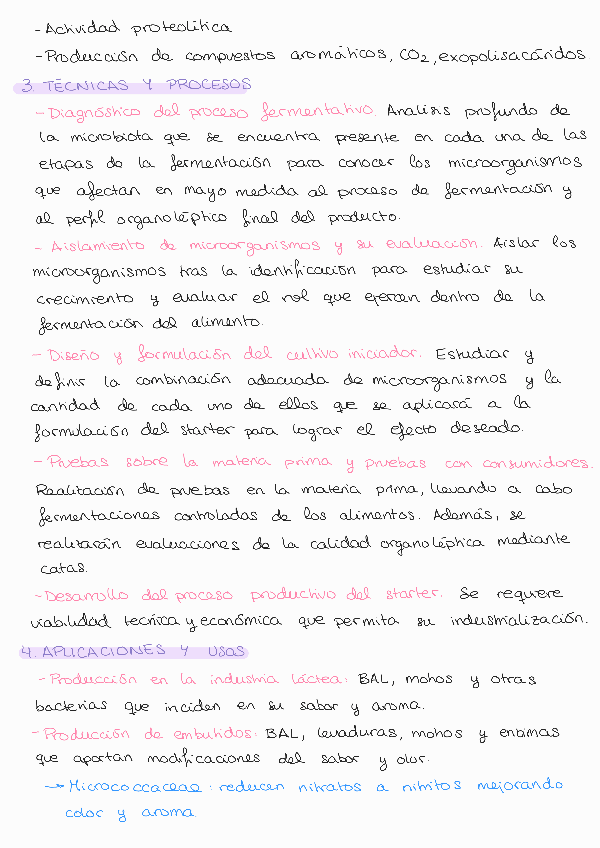 - Actividad proteolítica
- Producción de compuestos aromáticos, CO2, exopolisacáridos
3. TÉCNICAS Y PROCESOS
- Diagnóstico del proceso fermentativo. Analisis profundo de
la microbiota que se encuentra presente en cada una de las
etapas de la fermentación para conocer los microorganismos
que afectan en mayo medida al proceso de fermentación y
al perfil organoléptico final del producto.
- Aislamiento de microorganismos y su evaluación. Aislar los
microorganismos tras la identificación para estudiar su
crecimiento y evaluar el rol que ejercen dentro de la
fermentación del alimento.
- Diseño y formulación del cultivo iniciador. Estudiar y
definir la combinación adecuada de microorganismos y la
cantidad de cada uno de ellos que se aplicará a la
formulación del starter para lograr el efecto deseado.
- Pruebas sobre la materia prima y pruebas con consumidores.
Realización de pruebas en la materia prima, llevando a cabo
fermentaciones controladas de los alimentos. Además, se
realizarán evaluaciones de la calidad organoléptica mediante
catas.
- Desarrollo del proceso productivo del starter. Se requiere
viabilidad técnica y económica que permita su industrialización.
4. APLICACIONES Y USOS
- Producción en la industria láctea: BAL, mohos y otras
bacterias que inciden en su sabor y aroma.
- Producción de embutidos: BAL, levaduras, mohos y enzimas
que aportan modificaciones del sabor y olor.
→ Micrococcaceae: reducen nitratos a nitritos mejorando
color y aroma